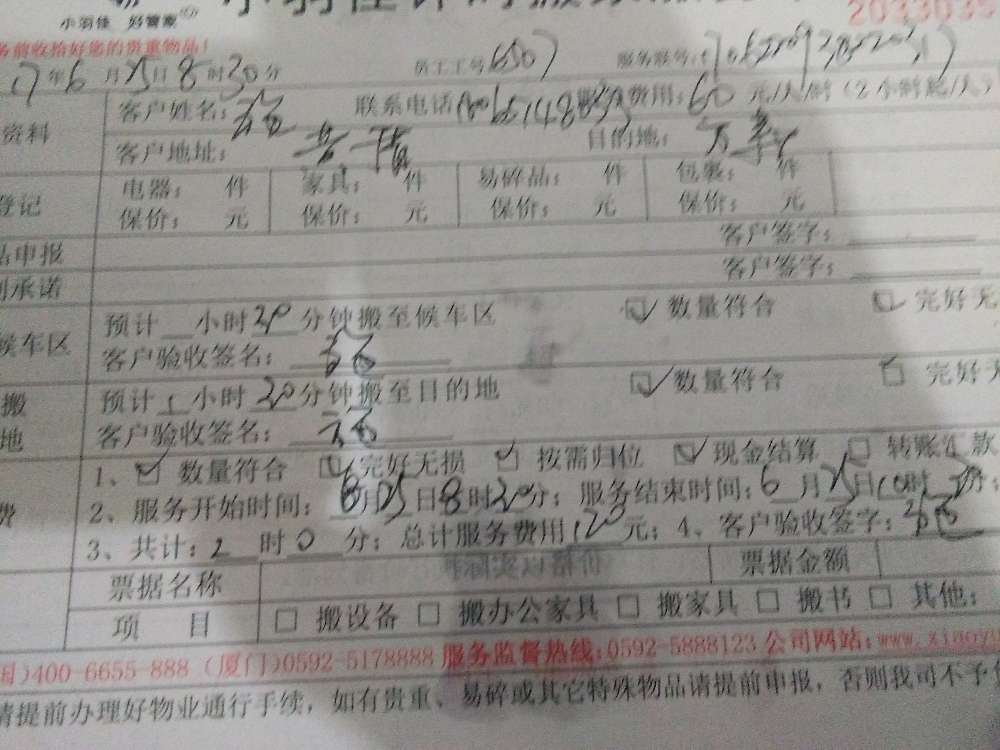 小羽佳 好管家
小羽佳计时搬家服
2033035
务前收拾好您的贵重物品！
17年6月25日8时30分 员工工号6507 服务账号:
资料 客户姓名： 联系电话 费用：60元/人/时（2小时起/人）
客户地址： 目的地：
登记 电器： 件 家具： 件 易碎品： 件 包裹： 件
保价： 元 保价： 元 保价： 元 保价： 元
品申报 客户签字：
别承诺 客户签字：
候车区 预计 小时30分钟搬至候车区 ☑ 数量符合 ☑ 完好无
客户验收签名：
搬 预计1小时30分钟搬至目的地 ☑ 数量符合 ☑ 完好无
地 客户验收签名：
1、☑ 数量符合 ☑ 完好无损 ☑ 按需归位 ☑ 现金结算 □ 转账汇款
费 2、服务开始时间：6月25日8时30分；服务结束时间：6月25日10时 分；
3、共计：2时0分；总计服务费用120元；4、客户验收签字：
票据名称 票据金额
项 目 □ 搬设备 □ 搬办公家具 □ 搬家具 □ 搬书 □ 其他：
国)400-6655-888（厦门)0592-5178888 服务监督热线:0592-5888123 公司网站:www.xiaoyu
请提前办理好物业通行手续，如有贵重、易碎或其它特殊物品请提前申报，否则我司不予